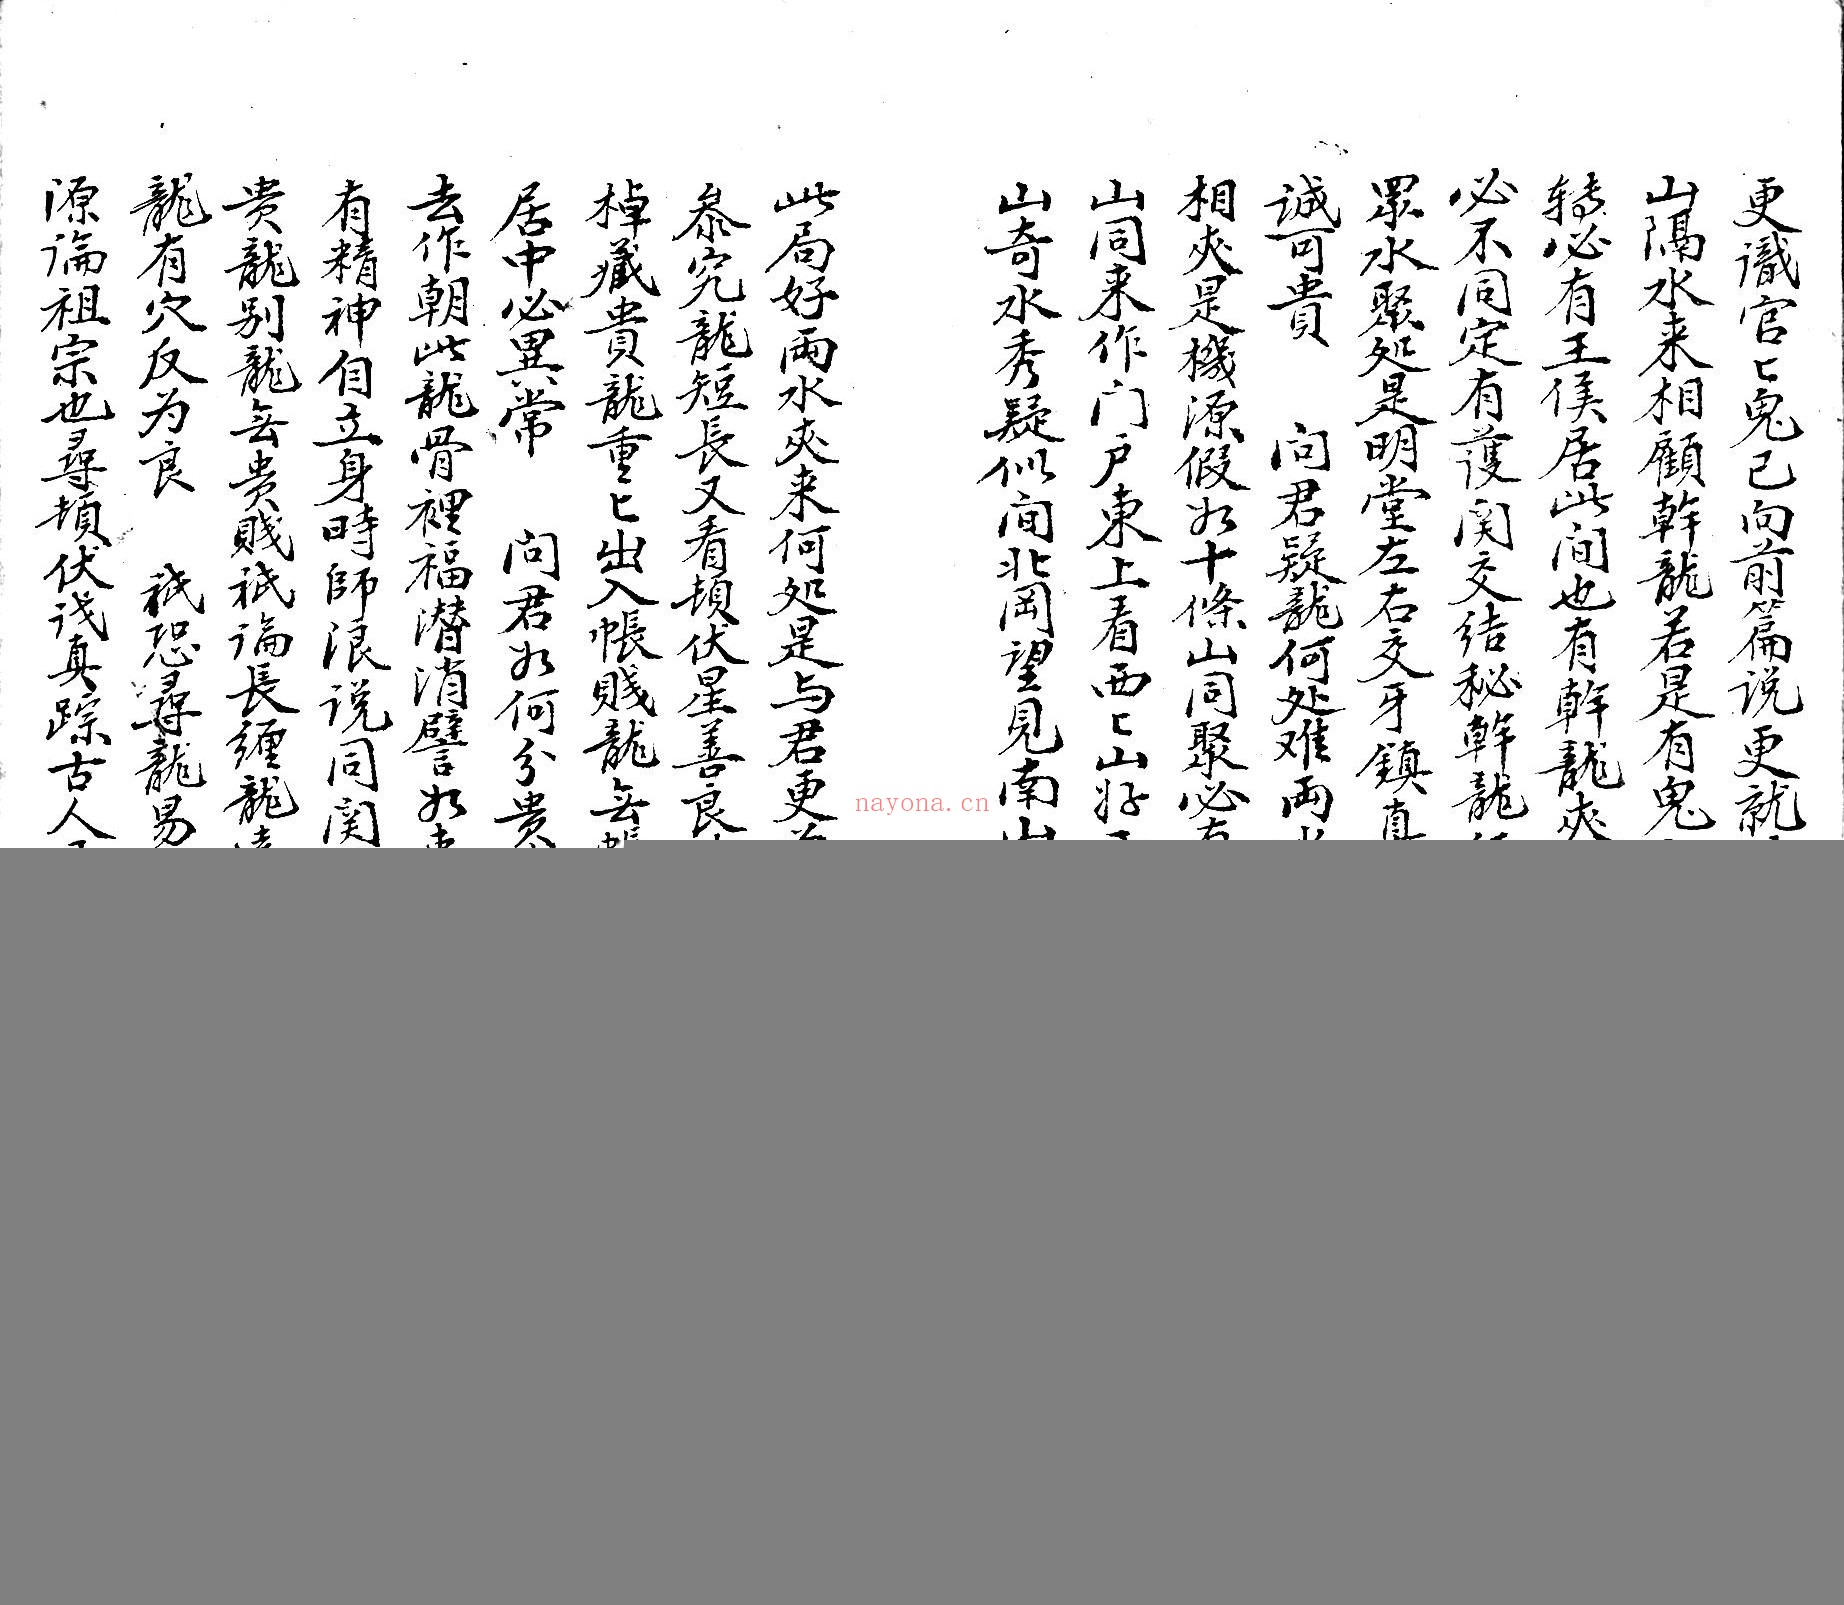 更識官〻鬼已向前篇说更就
山隔水来相顧幹龍若是有鬼
转必有王侯居此间也有幹龍夾
必不同定有護関交结秘幹龍
眾水聚処是明堂左右交牙鎮真
誠可貴 问君疑龍何处难両水
相夾是機源假如十條山同聚必有
山同来作门户東上看西〻山好
山奇水秀疑似间北岡望見南山
此局好両水夾来何処是与君更
叅究龍短長又看頓伏星善良
棹藏貴龍重〻出入帳賤龍無帳
居中必異常 问君如何分贵
去作朝此龍骨裡福潜消譬如
有精神自立身時師浪说同関
贵龍别龍無贵賤祇論長纏龍
龍有穴反为良 祇恐尋龍易
源論祖宗也尋頓伏识真踪古人
nayona.cn